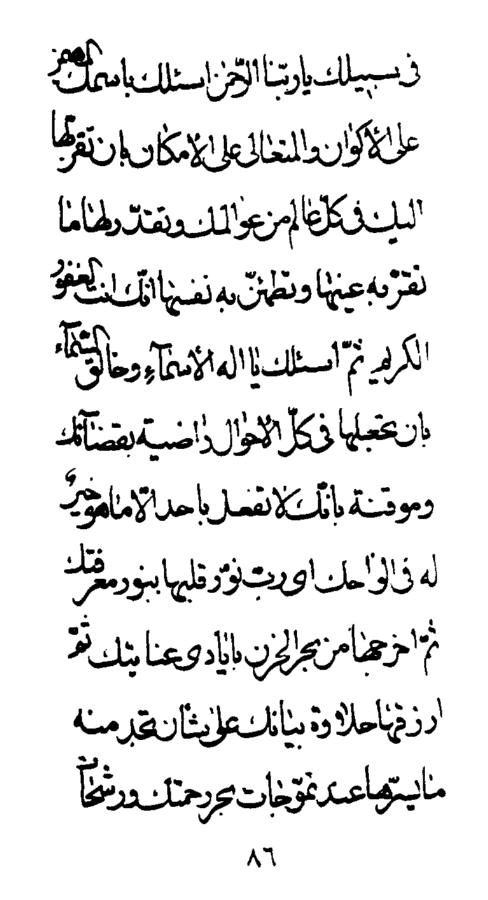 فی سبیلک یا ربنا الرحمن اسئلک باسمک المهیمن
علی الأکوان والمتعالی علی الامکان بان تقربها
الیک فی کل عالم من عوالمک وتقدر لها ما
تقر به عینها وتطمئن به نفسها انک انت الغفور
الکریم ثم اسئلک یا اله الاسمآء وخالق السمآء
بان تجعلها فی کل الاحوال راضیة بقضائک
وموقنة بانک لا تفعل باحد الا ما هو خیر
له فی الواحک ای رب نور قلبها بنور معرفتک
ثم اخرجها من بحر الحزن بایادی عنایتک ثم
ارزقها حلاوة بیانک علی شأن تجد منه
ما یسرها عند تموجات بحر رحمتک ورشحات
٨٦